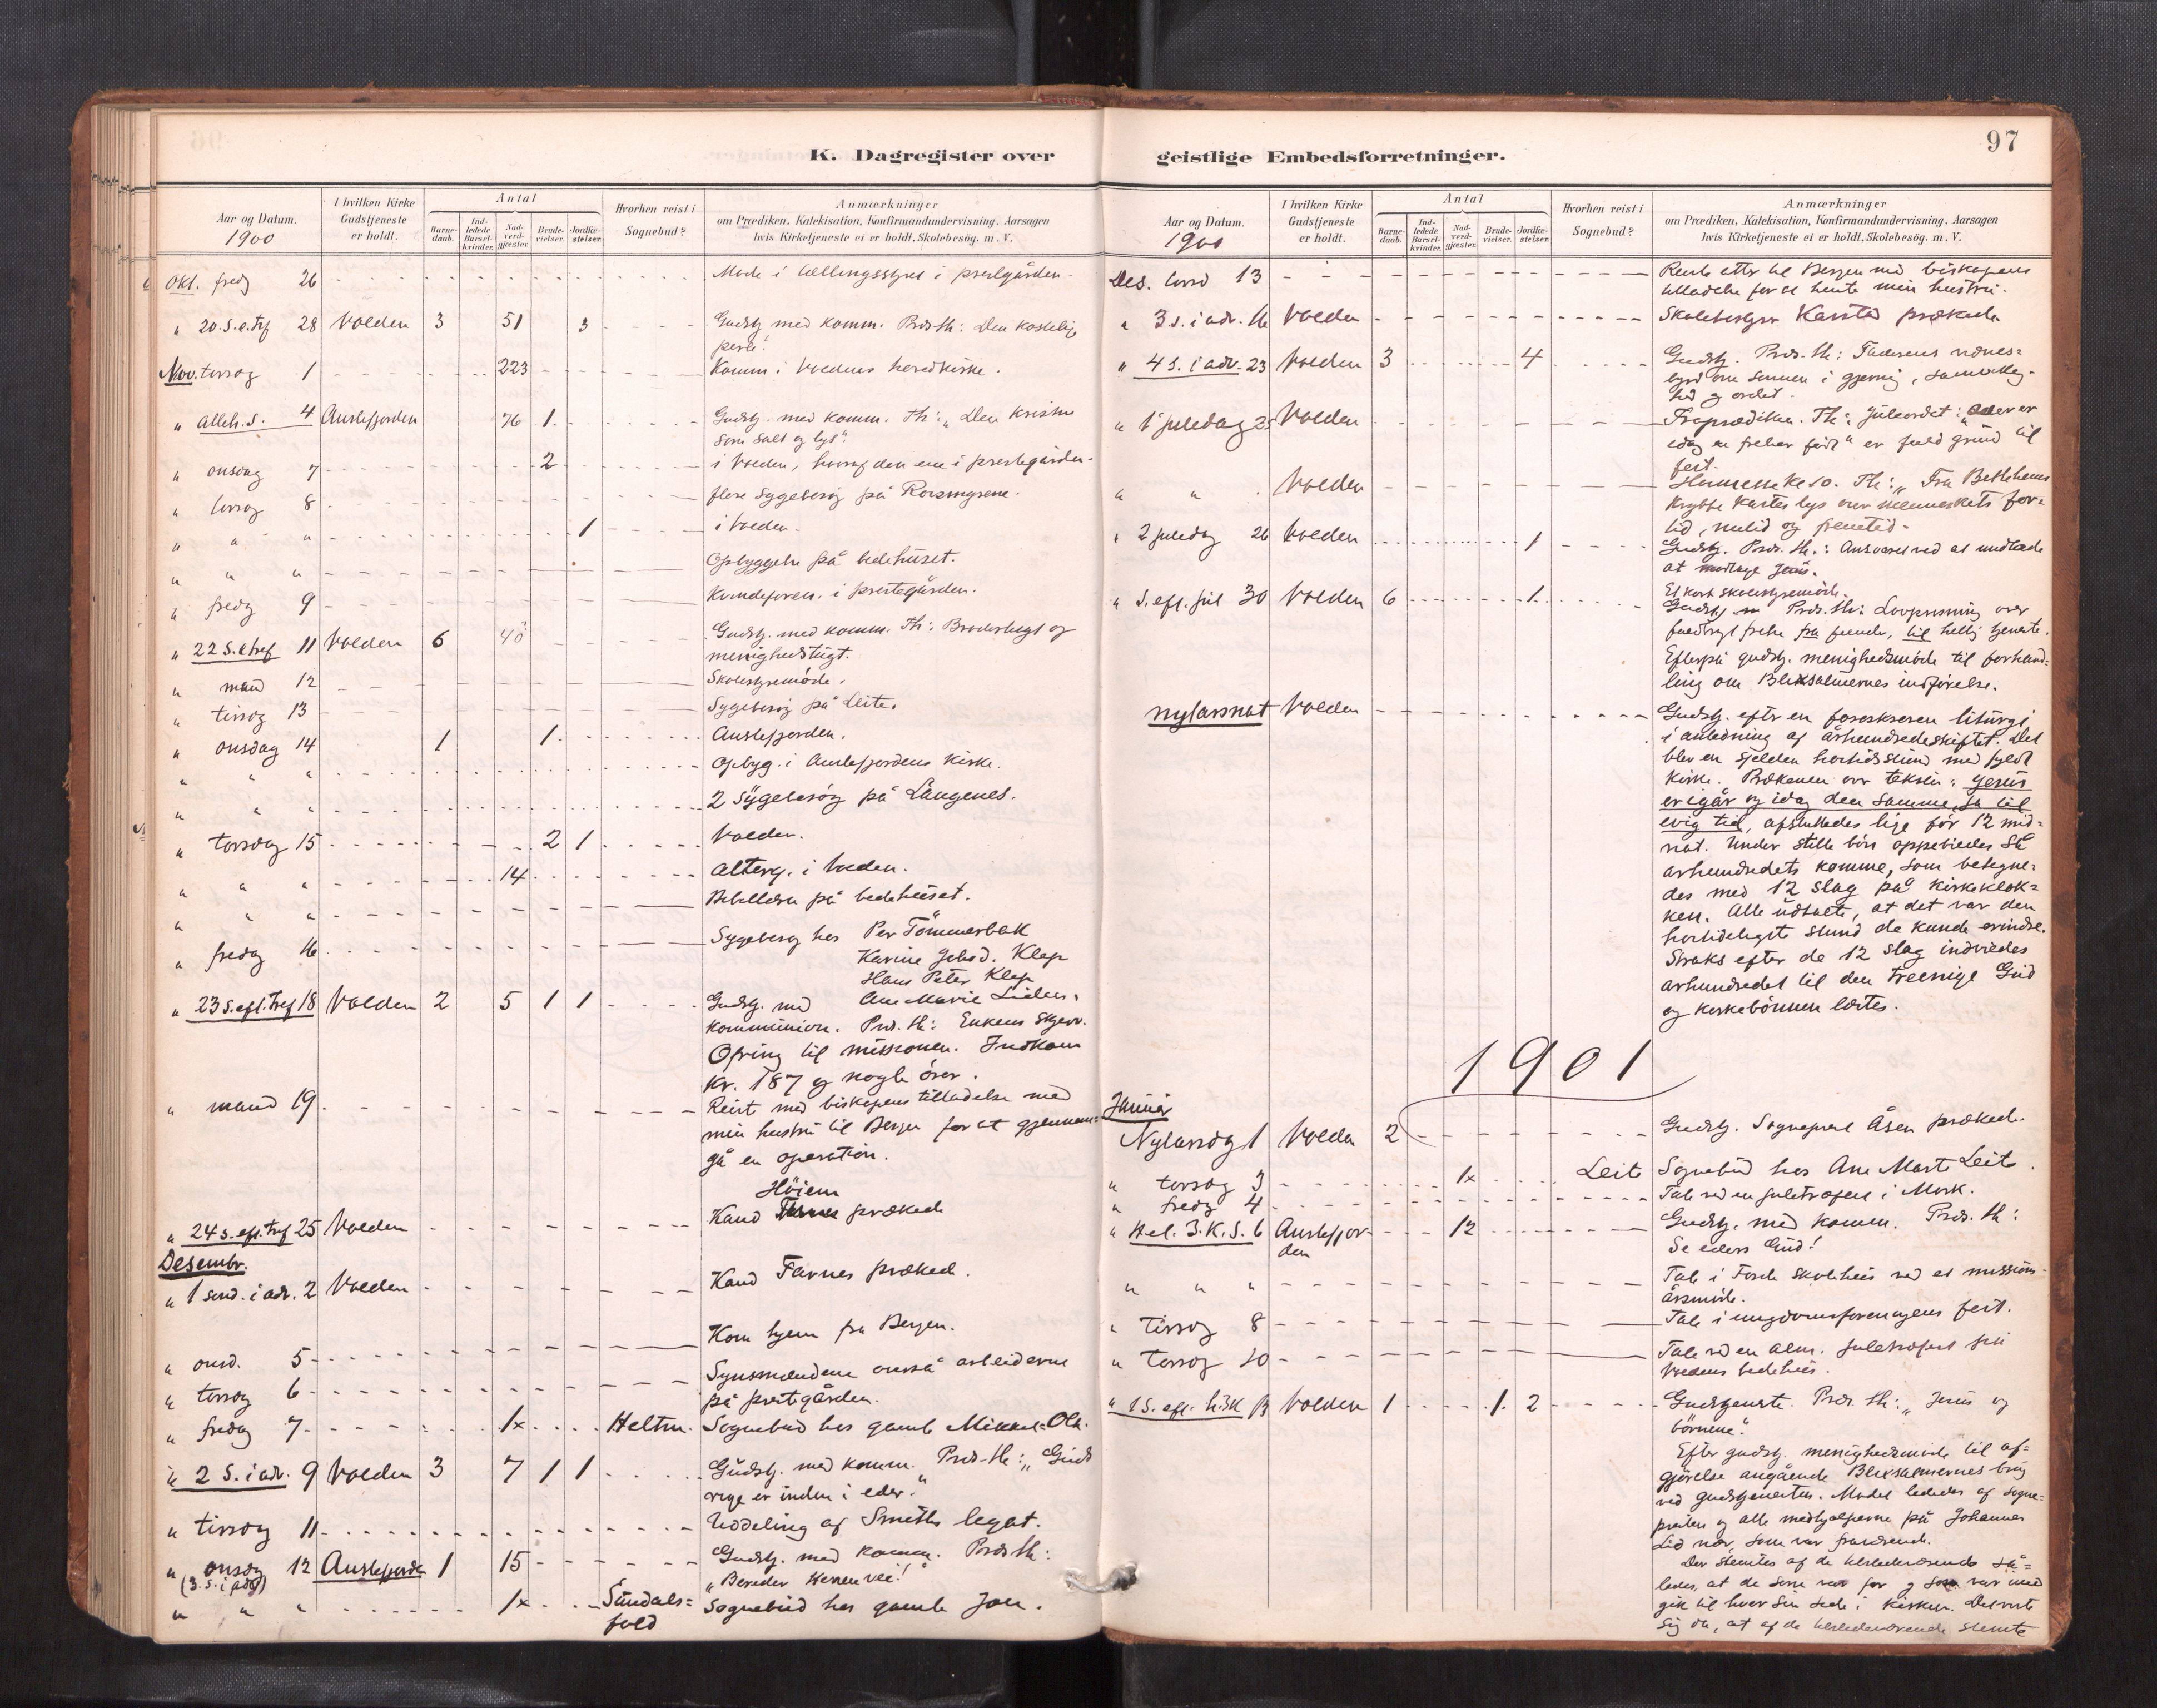 97
K. Dagregister over geistlige Embedsforretninger.
Aar og Datum. 1900
I hvilken Kirke Gudstjeneste er holdt.
Antal
Barne-daab.
Ind-ledede Barsel-kvinder.
Nad-verd-gjester.
Brude-vielser.
Jordfæ-stelser.
Hvorhen reist i Sognebud?
Anmærkninger
om Prædiken, Katekisation, Konfirmandundervisning, Aarsagen
hvis Kirketjeneste ei er holdt, Skolebesøg. m. V.
Okt. fredg 26 Møde i i prestgården
" 20. S. e. trf 28 Volden 3 51 3 Gudstj med komm. Præd. th: Den kostelige
perle."
Nov. torsdag 1 223 Komm i Voldens hovedkirke.
" Alleh. S. 4 Austefjorden 76 1 Gudstj. med komm. Th: „Den kristne
som salt og lys".
" onsdag 7 2 i Volden, hvoraf den ene i prestegården.
" torsdag 8 flere sygebesøg på Rotsmyrene.
" " " 1 i Volden.
" " " Opbyggelse på bedehuset.
" fredg 9 Kvindeforen. i prestegården.
" 22 S. e trf 11 Volden 6 40 Gudstj. med komm. Th: Brodertugt og
menighedstugt.
" mand 12 Skolestyremøde.
" tirsdg 13 Sygebesøg på Leite.
" onsdag 14 1 1 Austefjorden.
" " " Opbyg. i Austefjordens kirke.
" " " 2 Sygebesøg på Langenes.
" torsdag 15 2 1 Volden.
" " " 14 Alterg. i Volden.
" " " Bibellesn på bedehuset.
" fredag 16 Sygebesøg hos Per Tømmerbak
Karine Klep
Hans Peter Klep
Ane Marie
" 23 S. eft. tref 18 Volden 2 5 1 1 Gudstj. med
kommunion. Præd. th: Enkens skjerv.
Ofring til missionen. Indkom
kr. 187 og nogle ører.
" mand 19 Reist med biskopens tilladelse med
min hustru til Bergen for at gjennem-
gå en operation.
Høiem
" 24 s. eft. tref 25 Volden Kand prækede
Desembr.
" 1 sønd. i adv. 2 Volden Kand Tarnes præked.
" onsd. 5 Kom hjem fra Bergen.
" torsdg 6 Synsmændene arbeiderne
på prestegården.
" fredag 7 1x Heltn. Sognebud hos gamle Mikkel-Ola.
" 2 S. i adv. 9 Volden 3 7 1 1 Gudstj. med komm. Præd-th: „Guds
rige er inden i eder."
" tirsdag 11 Uddeling af Smiths legat.
" onsdg 12 Austefjorden 1 15 Gudstj. med komm. Præd th:
(3. S. i adv) „Bereder Herrens vei!"
" " " 1x Sundals= Sognebud hos gamle Jon.
fold
Aar og Datum. 1900
I hvilken Kirke Gudstjeneste er holdt.
Antal
Barne-daab.
Ind-ledede Barsel-kvinder.
Nad-verd-gjester.
Brude-vielser.
Jordfæ-stelser.
Hvorhen reist i Sognebud?
Anmærkninger
om Prædiken, Katekisation, Konfirmandundervisning, Aarsagen
hvis Kirketjeneste ei er holdt, Skolebesøg. m. V.
Des. torsd 13 Reiste etter til Bergen med biskopens
tilladelse for at hente min hustru.
" 3 s. i adv. 16 Volden Skolebestyrer Karstad prækede
" 4 s. i adv. 23 Volden 3 4 Gudstj. Præd. th: Faderens vidnes=
byrd om sønnen i gjerning,
hed og ordet.
" 1 juledag 25 Volden Fraprædiken. Th: Juleordet: „Eder er
idag en frelser født" er fuld grund til
fest.
" " Volden Th: „Fra Bethlehems
krybbe kastes lys over menneskets for=
tid, nutid og fremtid.
" 2 juledag 26 Volden 1 Gudstj. Præd. th.: Ansvaret ved at undlade
at modtage Jesus.
Et kort skolestyremøde.
" S. eft. jul 30 Volden 6 1 Gudstj m Præd. th: Lovprisning over
frelse fra fiender, til hellig tjeneste.
Efterpå gudstj. menighedsmøde til forhand=
ling om Blixsalmernes indførelse.
nytårsnat Volden Gudstj. efter en foreskreven liturgi
i anledning af århundredeskiftet. Det
blev en sjelden høitidsstund med fyldt
kirke. Prækenen over teksten: Jesus
er igår og idag den samme, ja til
evig tid, afsluttedes lige før 12 mid=
nat. Under stille bøn oppebiedes så
århundredets komme, som betegne=
des med 12 slag på kirkeklok=
ken. Alle udtalte, at det var den
høitideligste stund de kunde erindre.
Straks efter de 12 slag indviedes
århundredet til den treenige Gud
og kirkebønnen læstes.
1901
Januar
Nytårsdg 1 Volden 2 Gudstj. Sogneprest Åsen præked.
" torsdg 3 1x Leite Sognebud hos Ane Marte Leite.
" fredg 4 Tale ved en juletræfest i Mork.
" Hel. 3. K. S. 6 Austefjor- 12 Gudstj. med komm. Præd. th:
den Se eders Gud!
" " " Tale i skolehus ved et missions-
årsmøde.
" Tirsdg 8 Tale i ungdomsforeningens fest.
" Torsdg 10 Tale ved en alm. juletræfest på
Voldens bedehus.
" 1 S. eft. h3k 13 Volden 1 1 2 Gudstjeneste. Præd. th: „Jesus og
børnene."
Efter gudstj. menighedsmøde til af=
gjørelse angående Blixsalmernes brug
ved gudstjenesten. Mødet lededes af sogne=
presten og alle medhjælperne på Johannes
Lid nær, som var fraværende.
Der stemtes af de tilstedeværende så=
ledes, at de som var for og som var imod
gik til hver sin side i kirken. Det viste
sig da, at af de tilstedeværende stemte